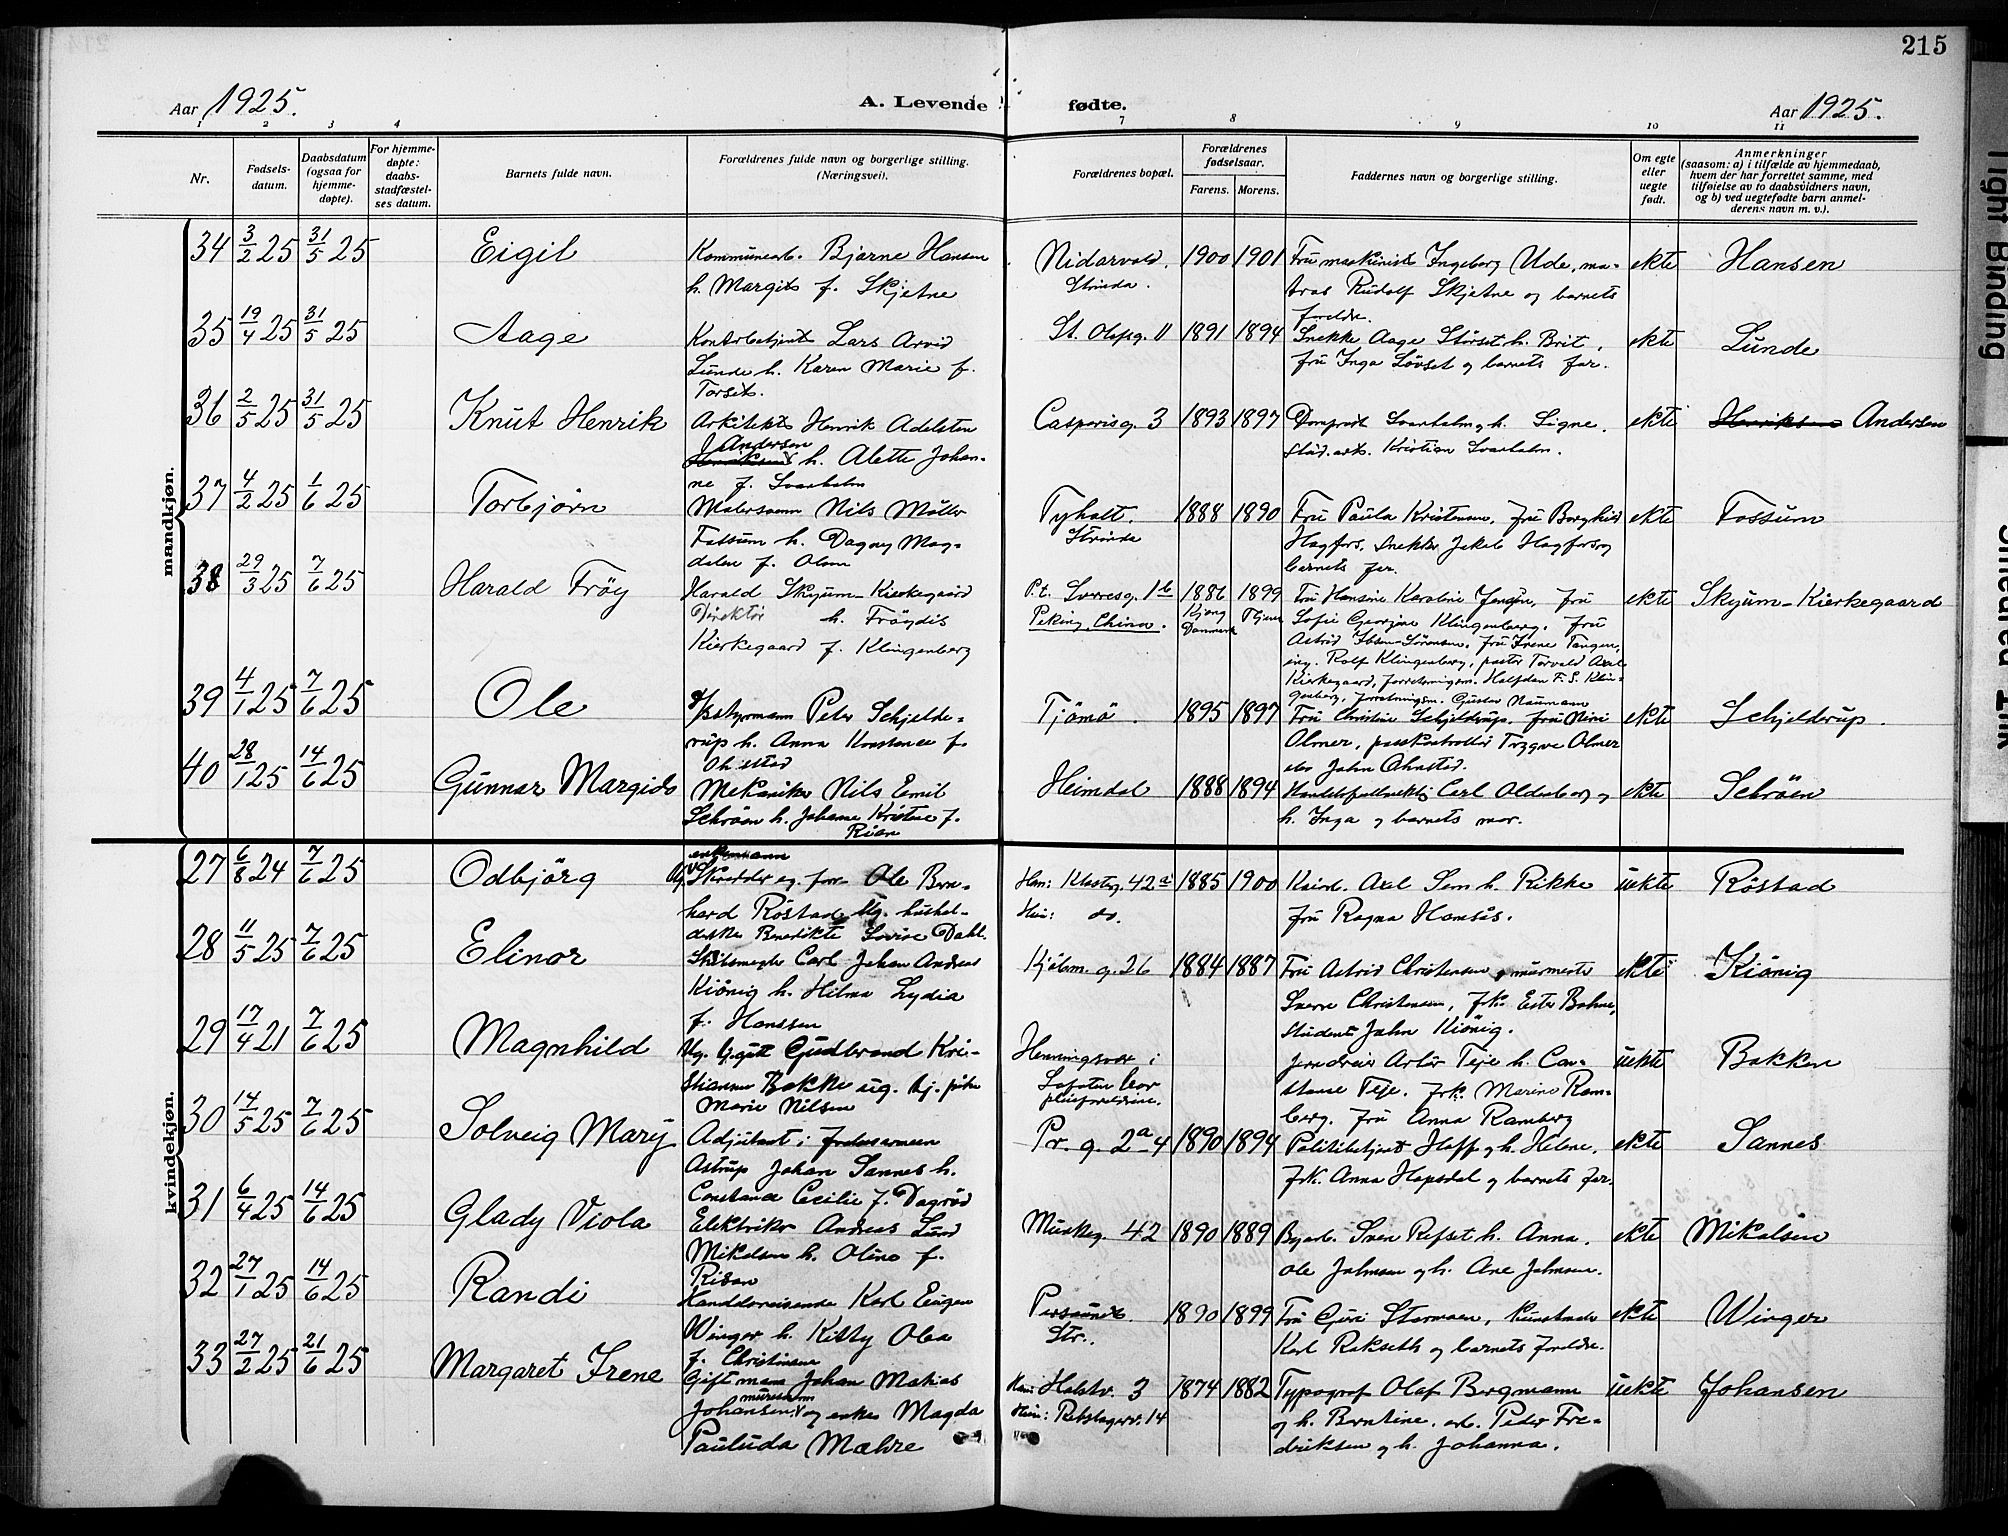 215
Aar 1925.
A. Levende fødte.
Aar 1925.
1 2 3 4 7 8 9 10 11
Nr.
Fødsels-
datum.
Daabsdatum
(ogsaa for
hjemme-
døpte).
For hjemme-
døpte:
daabs-
stadfæstel-
ses datum.
Barnets fulde navn.
Forældrenes fulde navn og borgerlige stilling.
(Næringsvei).
Forældrenes bopæl.
Forældrenes
fødselsaar.
Farens. Morens.
Faddernes navn og borgerlige stilling.
Om egte
eller
uegte
født.
Anmerkninger
(saasom: a) i tilfælde av hjemmedaab,
hvem der har forrettet samme, med
tilføielse av to daabsvidners navn,
og b) ved uegtefødte barn anmel-
derens navn m. v.).
mandkjøn.
34 3/2 25 31/5 25 Eigil
Kommunearb. Bjarne Hansen
h. Margit f. Skjetne
Nidarvold.
Strinda.
1900 1901
Fru maskinist Ingeborg Ude, ma-
tros Rudolf Skjetne og barnets
foreldre.
ekte Hansen
35 19/4 25 31/5 25 Aage
Kontorbetjent Lars Arvid
Lunde h. Karen Marie f.
Torset.
St. Olafsg. 11
1891 1894
Snekke Aage Störset h. Brit,
fru Inga Lövset og barnets far.
ekte Lunde
36 2/5 25 31/5 25 Knut Henrik
Arkitekt Henrik Adelsten
Andersen
h. Alette Johan-
ne f. Svarholm
Casparisg. 3
1893 1897
Svarholm og h. Signe.
Stud. ark. Kristian Svarholm.
ekte Henriksen Andersen
37 4/2 25 1/6 25 Torbjörn
Malersvenn Nils Möller
Fossum h. Dagny Mag-
dalen f. Olsen
Tyholt.
Strinda
1888 1890
Fru Paula Kristensen, fru Borghild
Hagfors, snekker Jakob Hagfors og
barnets far.
ekte Fossum
38 29/3 25 7/6 25 Harald Fröy
Harald Skyum-Kierkegaard
Direktör h. Fröydis
Kierkegaard f. Klingenberg
P.t. Sverresg. 1b
Peking, China.
1886 1899
Danmark
Fru Hansine Karoline Jensen, fru
Sofie Georgine Klingenberg, fru
Astrid Ibsen-Sörensen, fru Irene Tangen,
ing. Rolf Klingenberg, pastor Torvald Axel
Kierkegaard, forretningsm. Halfdan F. S. Klin-
genberg, forretningsm. Gustav Naumann
ekte Skyum-Kierkegaard
39 4/1 25 7/6 25 Ole
Peter Schjelde-
rup h. Anna Konstance f.
Tjömö.
1895 1897
Fru Christine Schjelderup, fru Mimi
Olmer, passkontrollör Trygve Olmer
John Ohnstad.
ekte Schjelderup.
40 28/1 25 14/6 25 Gunnar Margido
Mekaniker Nils Emil
Schröen h. Johanne Kristine f.
Rian
Heimdal
1888 1894
Carl Oldenborg og
h. Inga og barnets mor.
ekte Schröen
kvindekjøn.
27 6/8 24 7/6 25 Odbjörg
enkemann
Skredder og forr. Ole Bern-
hard Röstad Ug. hushol-
derske Benedikte Lovise Dahl.
Han: Klosterg. 42a
Hun: do.
1885 1900
Axel Sem h. Rikke
fru Ragna Hansås.
uekte Röstad
28 11/5 25 7/6 25 Elinor
Skibsmegler Carl Johan Andreas
Kiönig h. Hilma Lydia
f. Hanssen
Hjelm. g. 26
1884 1887
Fru Astrid Christensen, murmester
Sverre Christensen, frk. Ester Bohne,
Student John Kiönig.
ekte Kiönig
29 17/4 21 7/6 25 Magnhild
Ug. Gudbrand Kri-
stiansen Bakke ug. tj. pike
Marie Nilsen
Henningsvær i
Lofoten hos
pleieforeldrene.
Artür Teje h. Con-
stanse Teje. frk. Marino Ram-
berg. fru Anna Ramberg
uekte Bakken
30 14/5 25 7/6 25 Solveig Mary
Adjutant i frelsesarmeen
Astrup Johan Sannes h.
Constance Cecilie f. Dagröd
Pr. g. 2a 4
1890 1894
Politibetjent Hoff og h. Helene.
frk. Anna Hopsdal og barnets far.
ekte Sannes
31 6/4 25 14/6 25 Glady Viola
Elektriker Andreas Lund
Mikalsen h. Oline f.
Risan
Munkeg. 42
1890 1889
Byarb. Sven Refset h. Anna.
Ole Johnsen og h. Ane Johnsen.
ekte Mikalsen
32 27/1 25 14/6 25 Randi
Handelsreisende Karl Eugen
Winger h. Kitty Olea
f. Christensen
Persaunet
Str.
1890 1899
Fru Guri Stormoen, kunstmaler
Karl Rakseth og barnets foreldre.
ekte Winger
33 27/2 25 21/6 25 Margaret Irene
Gift mann Johan Matias
mursvenn
Johansen og enke Magda
Pauluda Mæhre
Han: Holstv. 3
Hun: Rebslagerv. 14
1874 1882
Typograf Olaf Bergmann
og h. Berntine. arb. Peder Fre-
driksen og h. Johanna.
uekte Johansen
Tight Binding